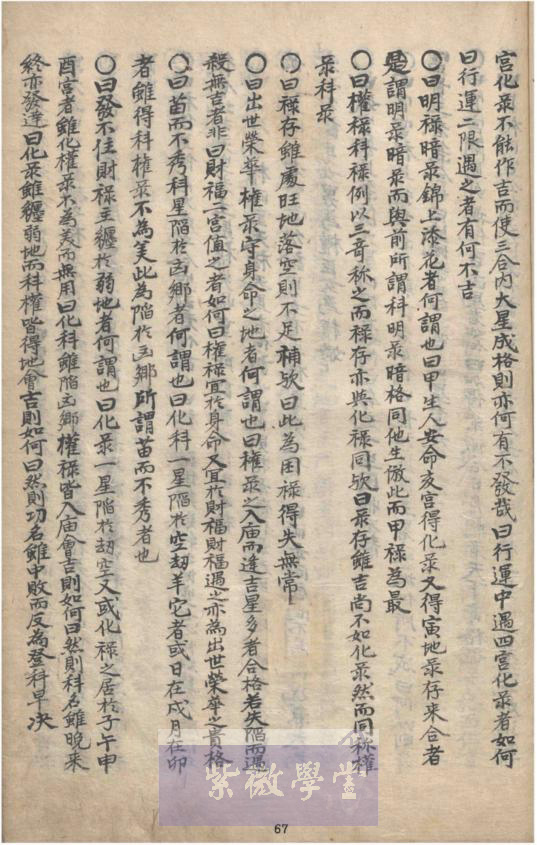 宮化彔不能作吉而使三合內大星成格則亦何有不發哉曰行運中遇四宮化彔者如何
曰行運二限遇之者有何不吉
○曰明禄暗彔錦上添花者何謂也曰甲生人安命亥宮得化彔又得寅地彔存來合者
是謂明彔暗彔而與前所謂科明彔暗格同他生倣此而甲禄為最
○曰權禄科禄例以三竒称之而禄存亦與化禄同欤曰彔存雖吉尚不如化彔然而同称權
彔科彔
○曰禄存雖處旺地落空則不足補欤曰此為困禄得失無常
○曰出世榮華權彔守身命之地者何謂也曰權彔之入庙而逢吉星多者合格若失陷而遇
殺無吉者非曰財福二宮值之者如何曰權禄宜於身命又宜於財福財福遇之亦為出世榮華之貴格
○曰苗而不秀科星陷於凶鄉者何謂也曰化科一星陷於空劫羊它者或日在戍月在卯
者雖得科權彔不為美此為陷於凶鄉所謂苗而不秀者也
○曰發不住財禄主纏於弱地者何謂也曰化彔一星陷於劫空又或化禄之居於子午申
酉宮者雖化權彔不為美而無用曰化科雖陷凶鄉權禄皆入庙會吉則如何曰然則科名雖晚来
終亦發達曰化彔雖纏弱地而科權皆得地會吉則如何曰然則功名雖中敗而反為登科早决
紫微學堂
67